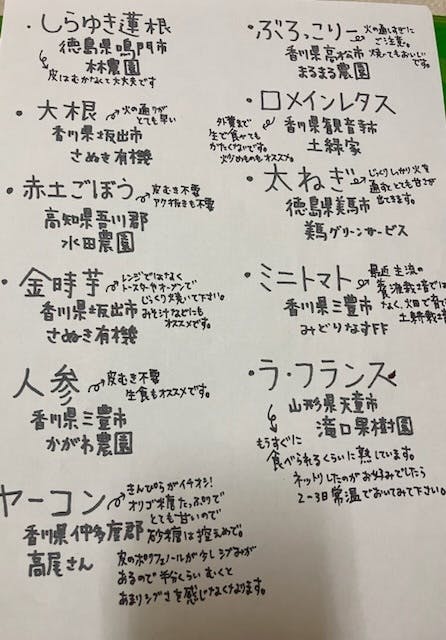 ・しらゆき蓮根
徳島県鳴門市
林農園
皮はむかなくて大丈夫です
・大根
火の通りが
とても早い
香川県坂出市
さぬき有機
・赤土ごぼう
皮むき不要
アク抜きも不要
高知県吾川郡
水田農園
・金時芋
レンジではなく
トースターやオーブンで
じっくり焼いて下さい。
みそ汁などにも
オススメです。
香川県坂出市
さぬき有機
人参
皮むき不要
生食もオススメです。
香川県三豊市
かがわ農園
ヤーコン
きんぴらがイチオシ!
オリゴ糖たっぷりで
とても甘いので
砂糖は控えめで。
香川県仲多度郡
高尾さん
皮のポリフェノールが少しシブみが
あるので半分くらいむくと
あまりシブさを感じなくなります。
・ぶろっこりー
火の通しすぎに
ご注意。
焼いてもおいしい
です。
香川県高松市
まるまる農園
・ロメインレタス
外葉まで
生で食べても
かたくないです。
炒めものもオススメ。
香川県観音寺市
土緑家
・太ねぎ
じっくりしっかり火を
通すととても甘さが
出てきます。
徳島県美馬市
美馬グリーンサービス
・ミニトマト
最近主流の
養液栽培では
なく、畑で育て
土耕栽培
香川県三豊市
みどりなすFF
・ラ・フランス
山形県天童市
滝口果樹園
もうすぐに
食べられるくらいに熟しています。
ネットリしたのがお好みでしたら
2-3日常温でおいてみて下さい。